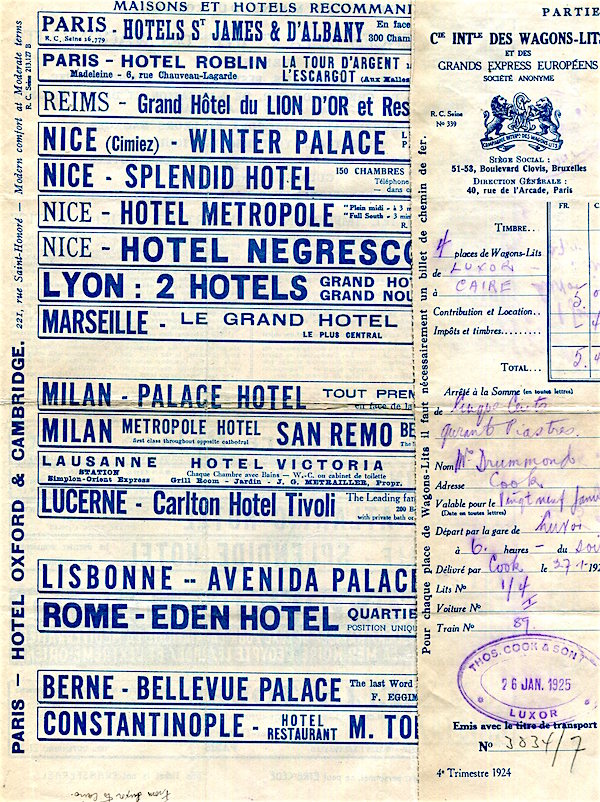 MAISONS ET HOTELS RECOMMAN
PARIS - HOTELS ST JAMES & D'ALBANY En face
R. C. Seine 26,779 300 Cham
PARIS - HOTEL ROBLIN LA TOUR D'ARGENT
Madeleine - 6, rue Chauveau-Lagarde L'ESCARGOT (Aux Halles
REIMS - Grand Hôtel du LION D'OR et Res
NICE (Cimiez) - WINTER PALACE
NICE - SPLENDID HOTEL 150 CHAMBRES
Téléphone
NICE - HOTEL METROPOLE "Plein midi - à 3 m
"Full South - 3 min
NICE - HOTEL NEGRESCO
LYON : 2 HOTELS GRAND HO
GRAND NOU
MARSEILLE - LE GRAND HOTEL
LE PLUS CENTRAL
MILAN - PALACE HOTEL TOUT PREM
en face de la
MILAN METROPOLE HOTEL SAN REMO BE
first class throughout opposite cathedral
LAUSANNE HOTEL VICTORIA
STATION Chaque Chambre avec Bains - W.-C. ou cabinet de toilette
Simplon-Orient Express Grill Room - Jardin - J. G. METRAILLER, Propr.
LUCERNE - Carlton Hotel Tivoli The Leading fam
200 B
with private bath or
LISBONNE -- AVENIDA PALACE
ROME - EDEN HOTEL QUARTIE
POSITION UNIQU
BERNE - BELLEVUE PALACE The last Word
F. EGGIM
CONSTANTINOPLE - HOTEL RESTAURANT M. TO
from Luxor to Cairo.
PARIS - HOTEL OXFORD & CAMBRIDGE. 221, rue Saint-Honoré - Modern comfort at Moderate terms
R. C. Seine 213.127 B
Pour chaque place de Wagons-Lits il faut nécessairement un billet de chemin de fer.
PARTIE
CIE INTLE DES WAGONS-LITS
ET DES
GRANDS EXPRESS EUROPÉENS
SOCIÉTÉ ANONYME
R. C. Seine
No 339
SIÈGE SOCIAL :
51-53, Boulevard Clovis, Bruxelles
DIRECTION GÉNÉRALE :
40, rue de l'Arcade, Paris
FR. C
TIMBRE..
4 places de Wagons-Lits
de LUXOR -
à CAIRE
Contribution et Location..
Impôts et timbres........
TOTAL...
Arrêté à la Somme (en toutes lettres)
de Cinque Cents
quarante Piastres.
Nom Mr Drummond
Adresse Cook
Valable pour le Vingt neuf Janv
(Date en toutes lettres)
Départ par la gare de Luxor
à 6. heures - du Soir
Délivré par Cook le 27-1-192
Lits No 1/4
Voiture No I
Train No 89.
THOS. COOK & SON LT
26 JAN. 1925
LUXOR
Emis avec le titre de transport
No 3034/7
4e Trimestre 1924